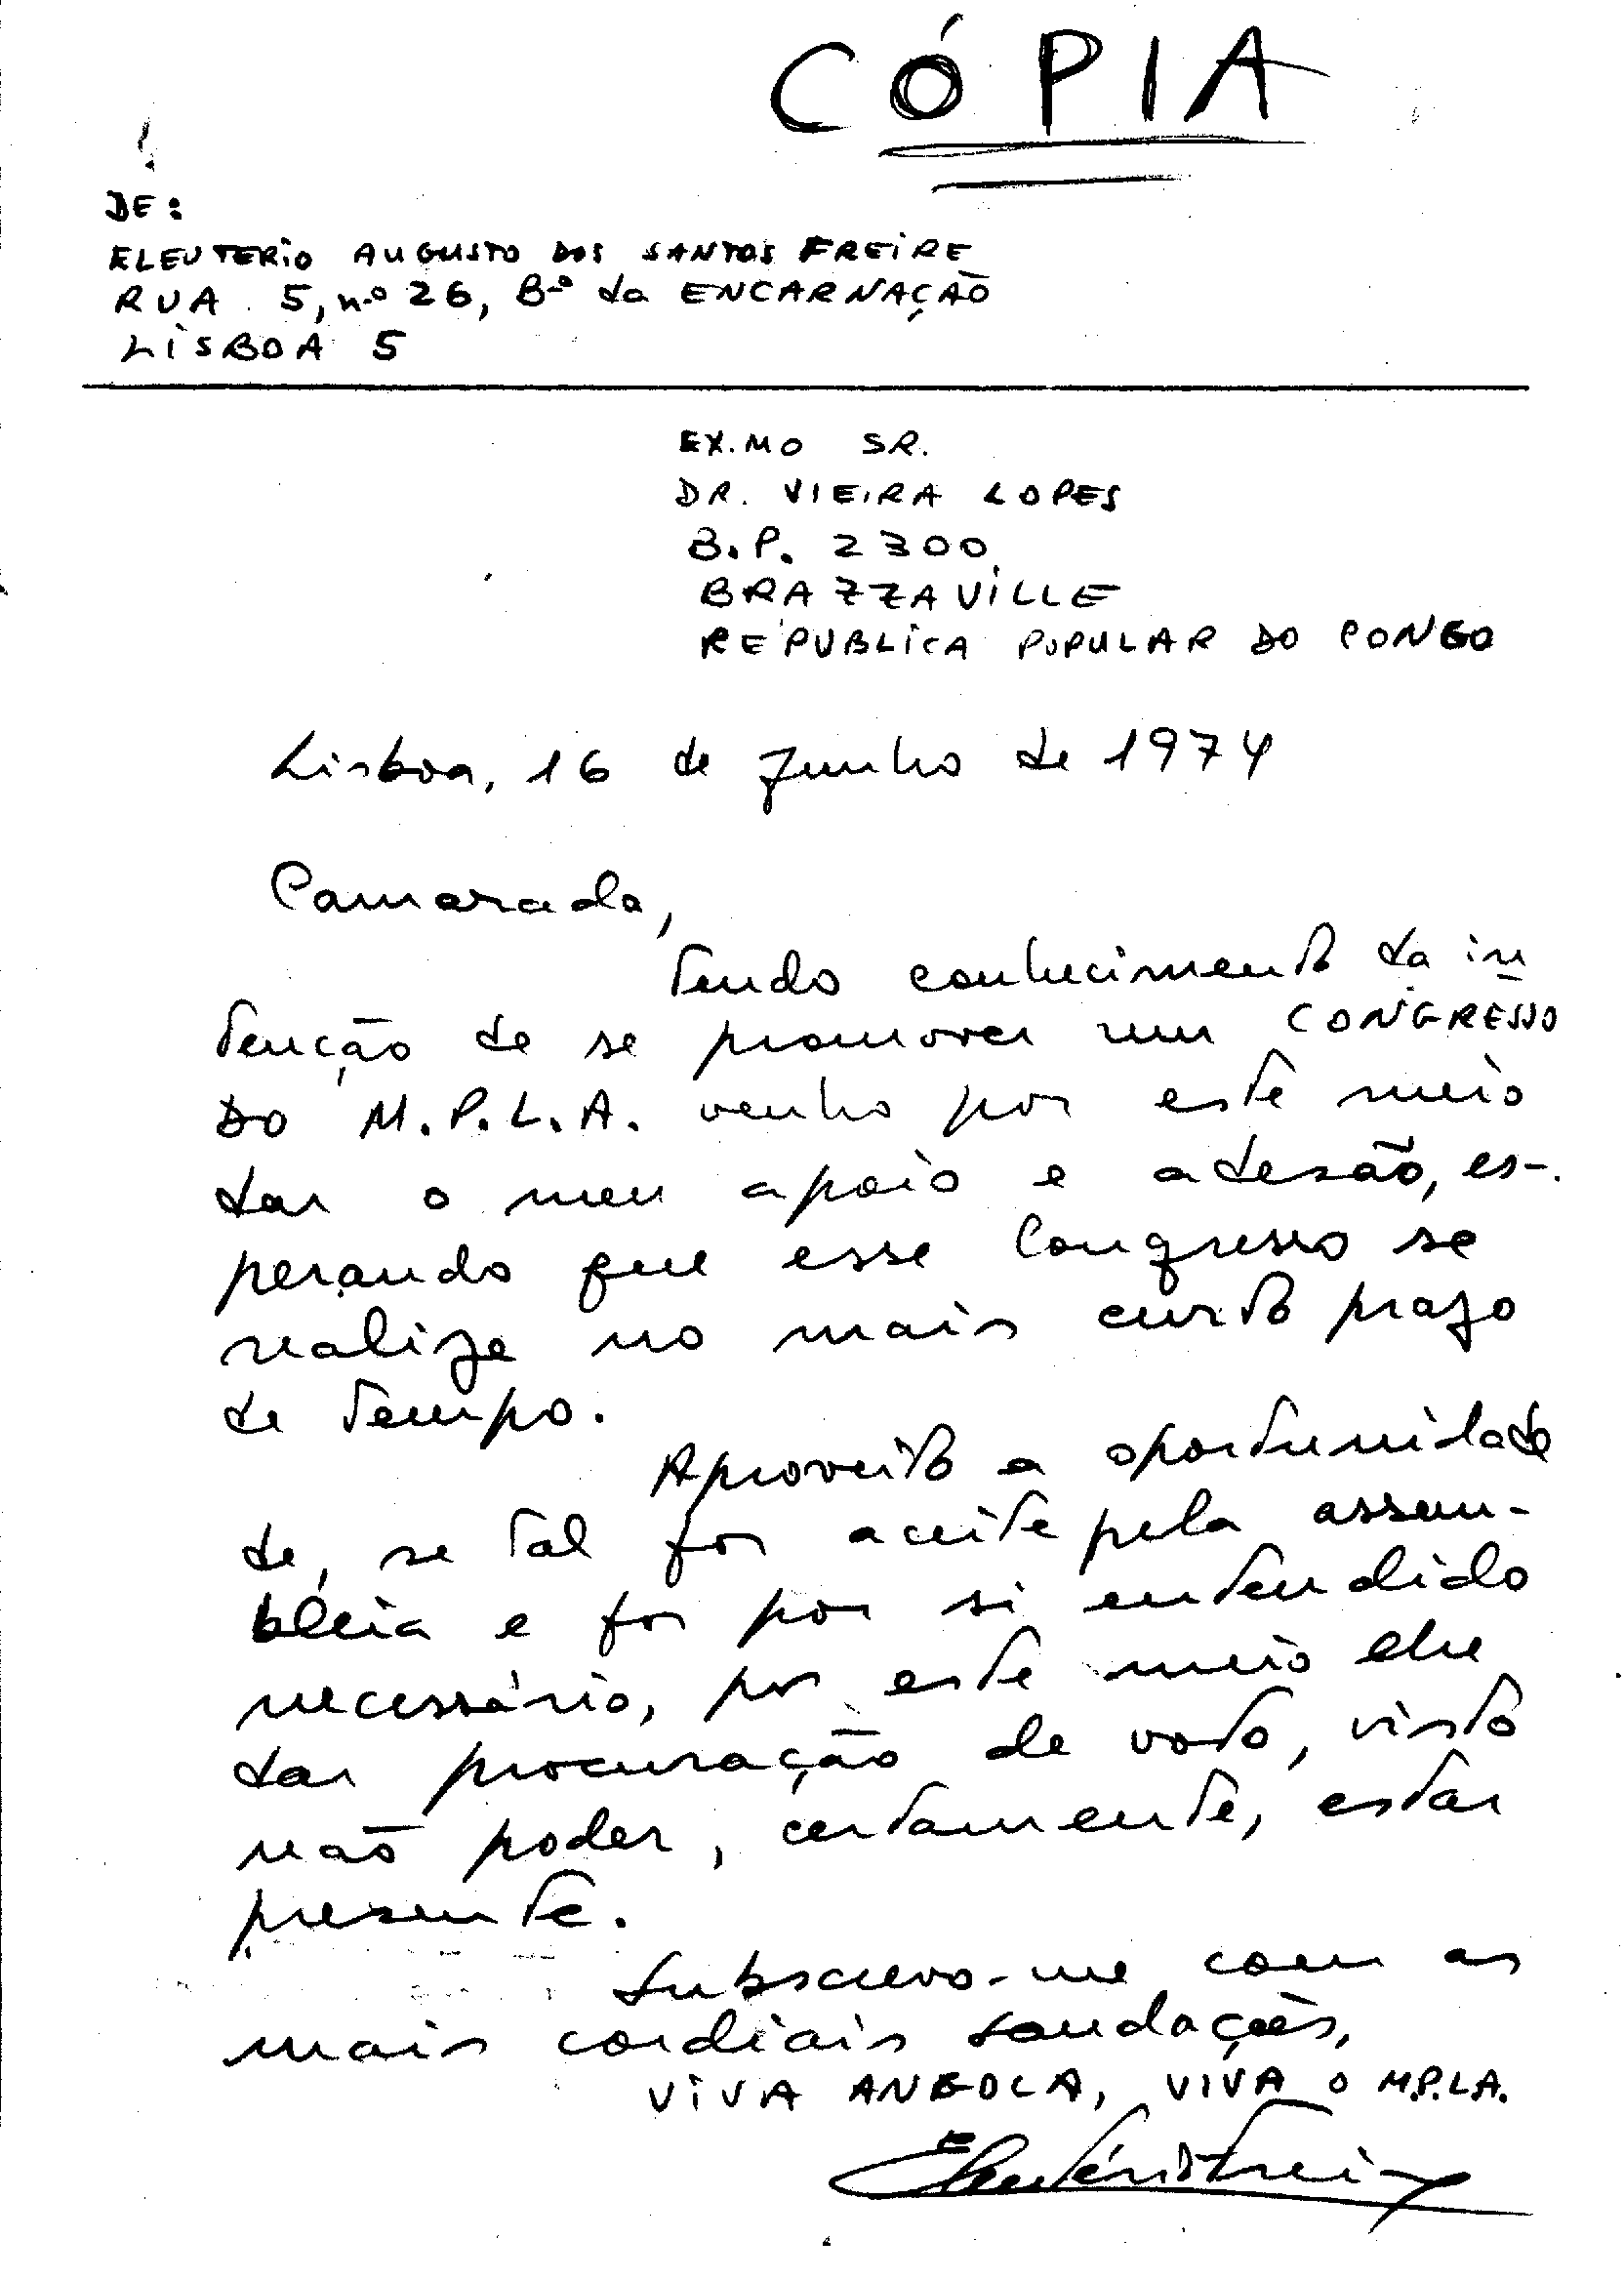 CÓPIA
DE:
ELEUTERIO AUGUSTO DOS SANTOS FREIRE
RUA 5, n.º 26, B.º da ENCARNAÇÃO
LISBOA 5
EX.MO SR.
DR. VIEIRA LOPES
B.P. 2300
BRAZZAVILLE
REPUBLICA POPULAR DO CONGO
Lisboa, 16 de Junho de 1974
Camarada,
Tendo conhecimento da in
tenção de se promover um CONGRESSO
DO M.P.L.A. venho por este meio
dar o meu apoio e adesão, es-
perando que esse Congresso se
realize no mais curto prazo
de tempo.
Aproveito a oportunidade
de, se tal for aceite pela assem-
bleia e for por si entendido
necessário, por este meio lhe
dar procuração de voto, visto
não poder, certamente, estar
presente.
Subscrevo-me com as
mais cordiais saudações,
VIVA ANGOLA, VIVA O M.P.L.A.
Eleutério Freire